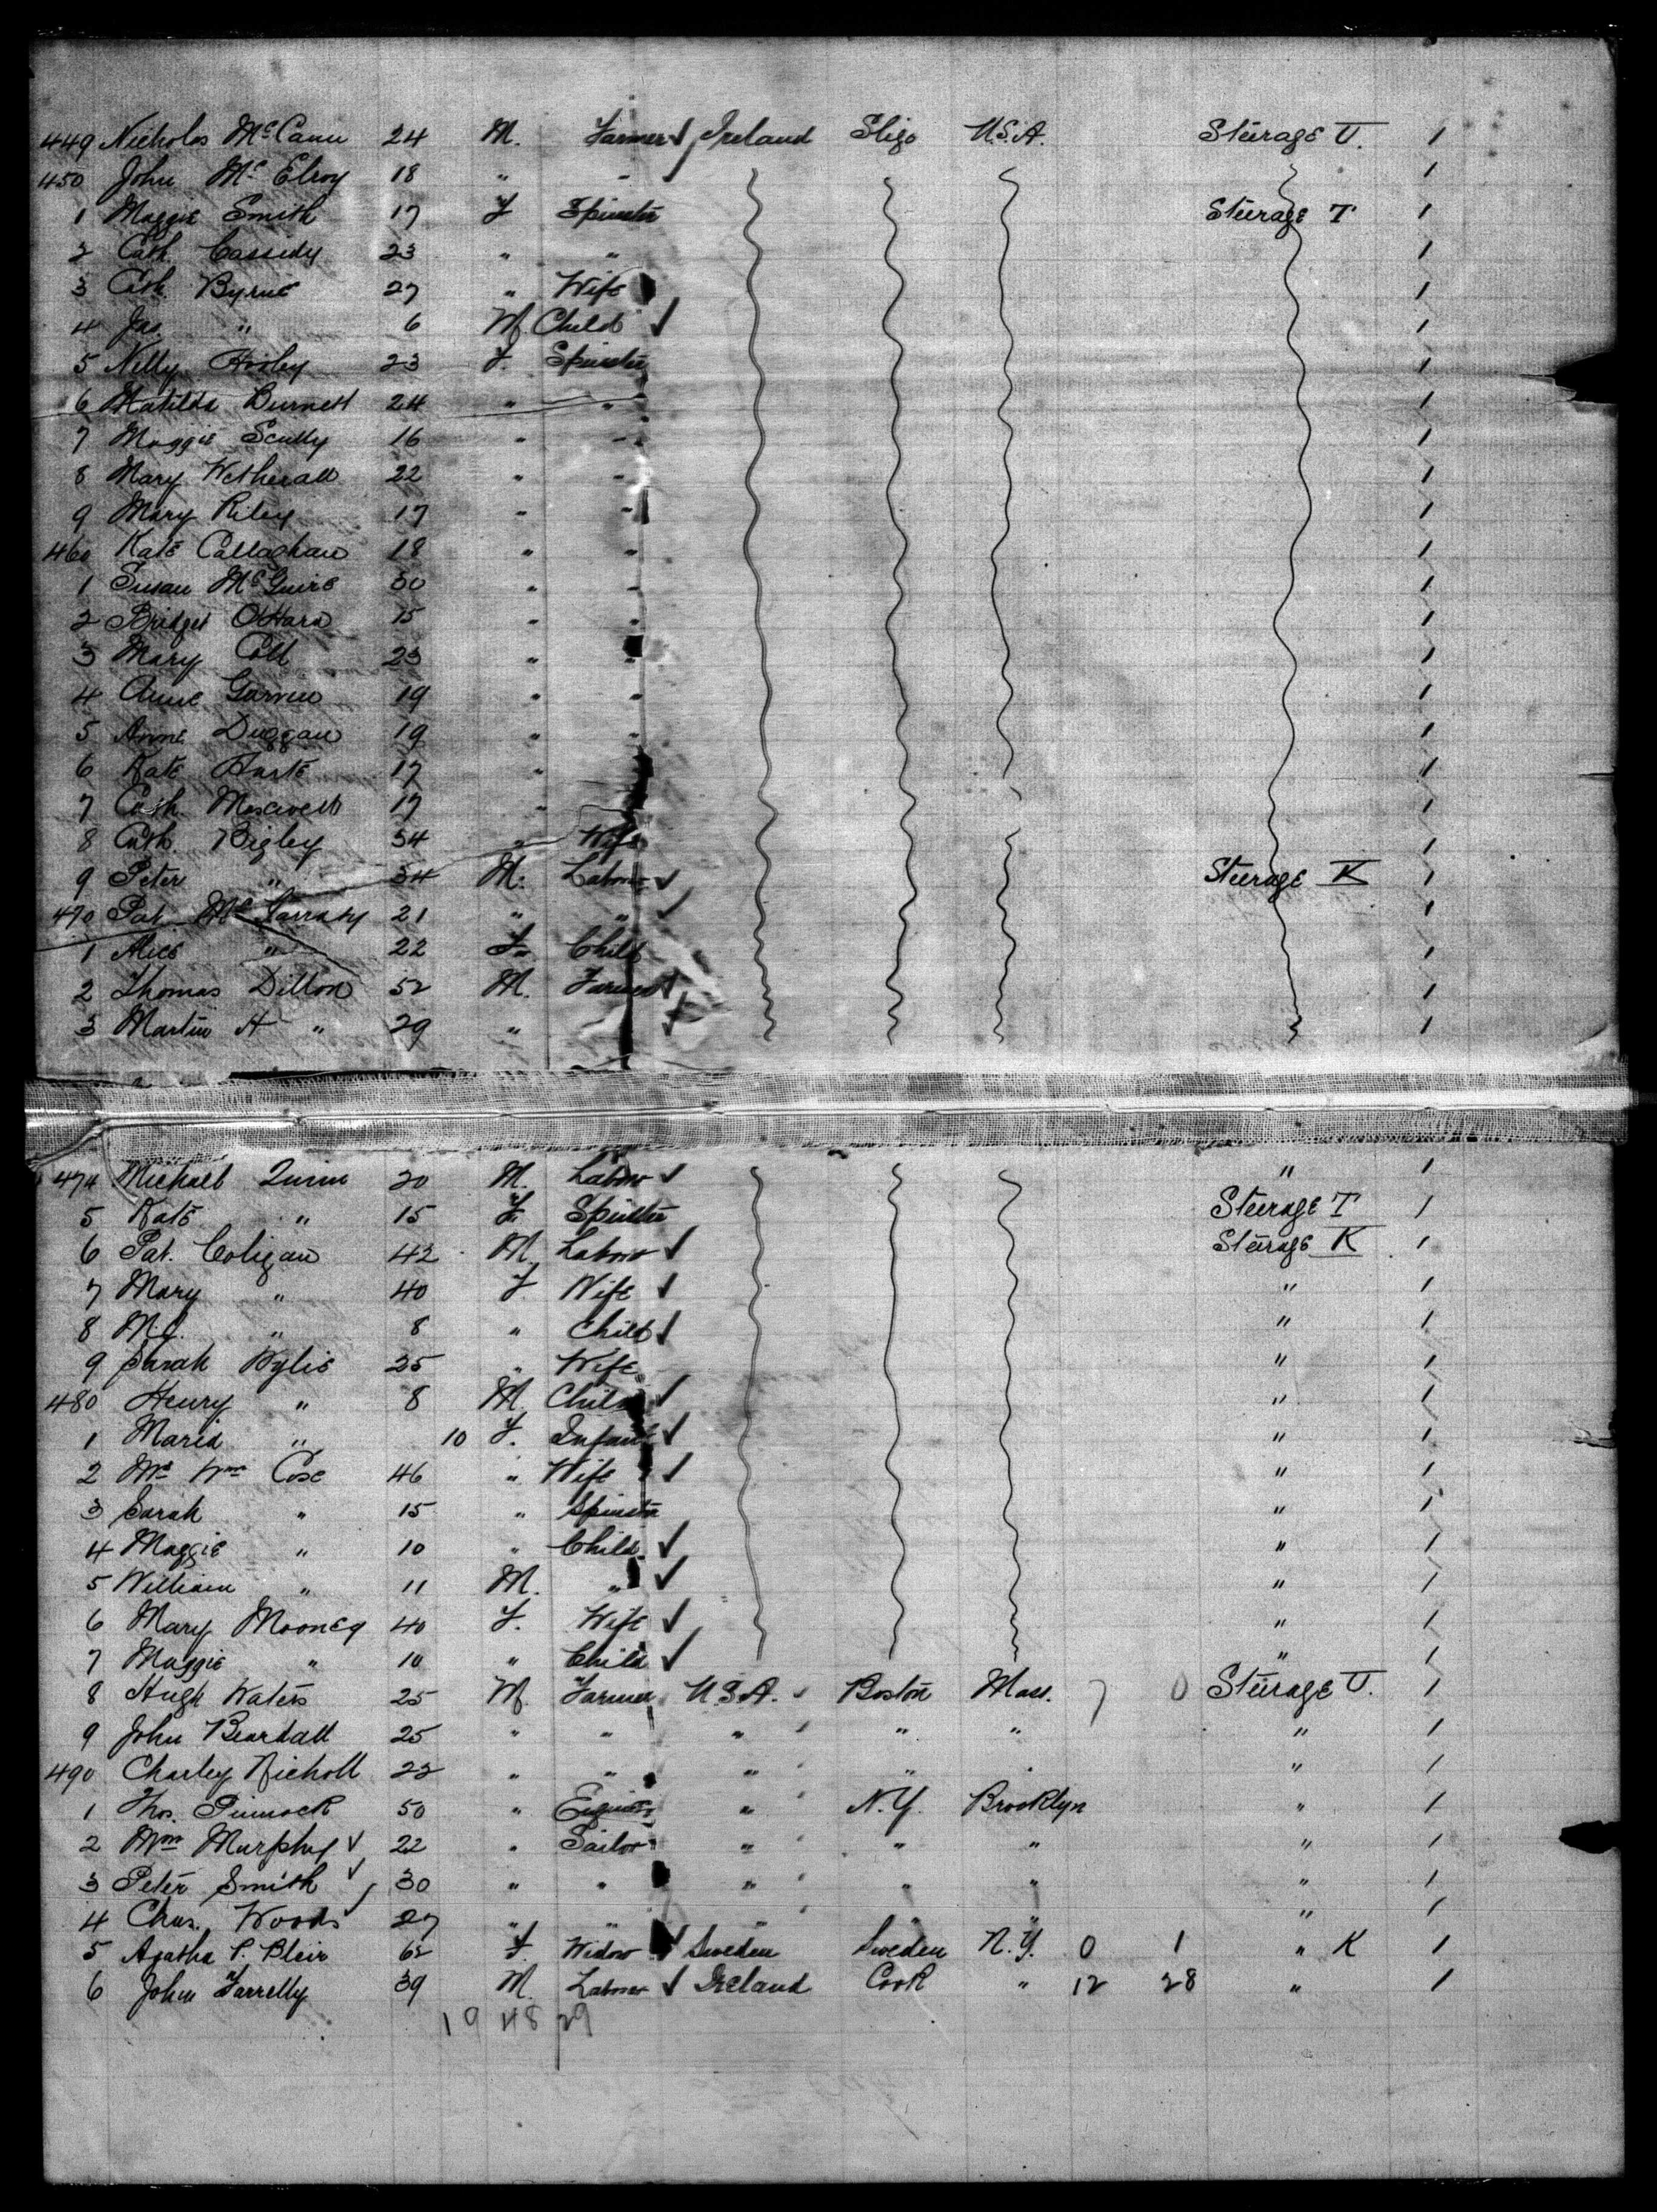 449 Nicholas McCann 24 M. Farmer ✓ Ireland Sligo U.S.A. Steerage U. 1
450 John McElroy 18 " " ✓ 1
1 Maggie Smith 17 F Spinster Steerage T 1
2 Cath. Cassidy 23 " " 1
3 Cath. Byrne 27 " Wife 1
4 Jas. " 6 M. Child ✓ 1
5 Nelly 23 F. Spinster 1
6 Matilda Burnett 24 " " 1
7 Maggie Scully 16 " " 1
8 Mary Wetherall 22 " " 1
9 Mary Riley 17 " " 1
460 Kate Callaghan 18 " " 1
1 Susan McGuire 30 " " 1
2 Bridget O'Hara 15 " " 1
3 Mary Coll 23 " " 1
4 Anne Garvin 19 " " 1
5 Anne Duggan 19 " " 1
6 Kate Harte 17 " 1
7 Cath. Maxwell 17 " 1
8 Cath. Bigley 34 " Wife 1
9 Peter " 34 M. Labour ✓ Steerage K 1
470 Pat. McGarraty 21 " " ✓ 1
1 Alice " 22 F. Child 1
2 Thomas Dillon 52 M. Farmer ✓ 1
3 Martin H " 29 " ✓ 1
474 Michael Quinn 20 M. Labour ✓ " 1
5 Kate " 15 F. Spinster Steerage T 1
6 Pat. Coligan 42 M. Labour ✓ Steerage K 1
7 Mary " 40 F. Wife ✓ " 1
8 M.J. " 8 " Child ✓ " 1
9 Sarah Wylie 25 " Wife " 1
480 Henry " 8 M. Child ✓ " 1
1 Maria " 10 F. Infant ✓ " 1
2 Mrs Wm Cose 46 " Wife ✓ " 1
3 Sarah " 15 " Spinster " 1
4 Maggie " 10 " Child ✓ " 1
5 William " 11 M. " ✓ " 1
6 Mary Mooney 40 F. Wife ✓ " 1
7 Maggie " 10 " Child ✓ " 1
8 Hugh Waters 25 M. Farmer U.S.A. Boston Mass. 7 0 Steerage U. 1
9 John Beardall 25 " " " " " " 1
490 Charley Nicholl 22 " " " " " " 1
1 Thos. Pinnock 50 " Engineer " N.Y. Brooklyn " 1
2 Wm Murphy ✓ 22 " Sailor " " " " 1
3 Peter Smith ✓ 30 " " " " " " 1
4 Chas. Woods ✓ 27 " " " " " 1
5 Agatha P. Blair 62 F. Widow ✓ Sweden Sweden N.Y. 0 1 " K 1
6 John Farrelly 39 M. Labour ✓ Ireland Cook " 12 28 " 1
19 48 29